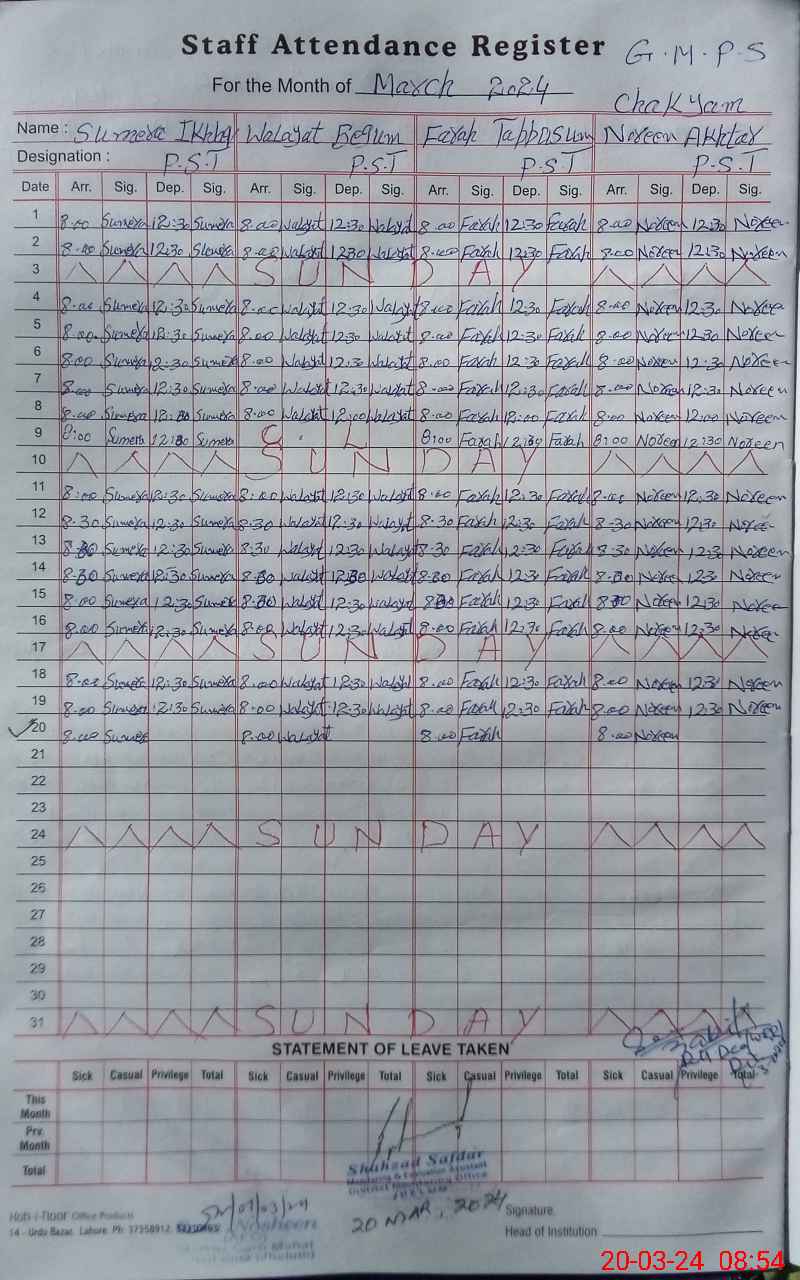 Staff Attendance Register G.M.P.S
For the Month of March 2024
Chakyam
Name : Sumera Walayat Begum Farah Tabbasum Noreen Akhtar
Designation : P.S.T P.S.T P.S.T P.S.T
Date Arr. Sig. Dep. Sig. Arr. Sig. Dep. Sig. Arr. Sig. Dep. Sig. Arr. Sig. Dep. Sig.
1 8.00 Sumera 12:30 Sumera 8.00 Walayat 12:30 Walayat 8.00 Farah 12:30 Farah 8.00 Noreen 12:30 Noreen
2 8.00 Sumera 12:30 Sumera 8.00 Walayat 12:30 Walayat 8.00 Farah 12:30 Farah 8.00 Noreen 12:30 Noreen
3 S U N D A Y
4 8.00 Sumera 12:30 Sumera 8.00 Walayat 12:30 Walayat 8.00 Farah 12:30 Farah 8.00 Noreen 12:30 Noreen
5 8.00 Sumera 12:30 Sumera 8.00 Walayat 12:30 Walayat 8.00 Farah 12:30 Farah 8.00 Noreen 12:30 Noreen
6 8.00 Sumera 12:30 Sumera 8.00 Walayat 12:30 Walayat 8.00 Farah 12:30 Farah 8.00 Noreen 12:30 Noreen
7 8.00 Sumera 12:30 Sumera 8.00 Walayat 12:30 Walayat 8.00 Farah 12:30 Farah 8.00 Noreen 12:30 Noreen
8 8.00 Sumera Sumera 8.00 Walayat 12:00 Walayat 8.00 Farah 12:00 Farah 8:00 Noreen 12:00 Noreen
9 8:00 Sumera 12:30 Sumera C. L 8:00 Farah 12:30 Farah 8:00 Noreen 12:30 Noreen
10 S U N D A Y
11 8:00 Sumera 12:30 Sumera 8:00 Walayat 12:30 Walayat 8.00 Farah 12:30 Farah 8.00 Noreen 12:30 Noreen
12 8.30 Sumera 12:30 Sumera 8:30 Walayat 12:30 Walayat 8.30 Farah 12:30 Farah 8.30 Noreen 12:30 Noreen
13 8.30 Sumera 12:30 Sumera 8:30 Walayat 12:30 Walayat 8.30 Farah 12:30 Farah 8:30 Noreen 12:3 Noreen
14 8.30 Sumera 12:30 Sumera 8.30 Walayat 12:30 Walayat 8.30 Farah 12:30 Farah 8.30 Noreen 12:3 Noreen
15 8.00 Sumera 12:30 Sumera Walayat 12:30 Walayat Farah 12:30 Farah Noreen 12:30 Noreen
16 8.00 Sumera 12:30 Sumera 8.00 Walayat 12:30 Walayat 8.00 Farah 12:30 Farah 8.00 Noreen 12:30 Noreen
17 S U N D A Y
18 8.00 Sumera 12:30 Sumera 8.00 Walayat 12:30 Walayat 8.00 Farah 12:30 Farah 8.00 Noreen 12:30 Noreen
19 8.00 Sumera 12:30 Sumera 8.00 Walayat 12:30 Walayat 8.00 Farah 12:30 Farah 8.00 Noreen 12:30 Noreen
20 8.00 Sumera 8.00 Walayat 8.00 Farah 8.00 Noreen
21
22
23
24 S U N D A Y
25
26
27
28
29
30
31 S U N D A Y
STATEMENT OF LEAVE TAKEN
Sick Casual Privilege Total Sick Casual Privilege Total Sick Casual Privilege Total Sick Casual Privilege Total
This Month
Prv. Month
Total
Shahzad Safdar
20 MAR, 2024
01/03/24
Signature
Office Products
14 - Urdu Bazar, Lahore. Ph: 37358912
Head of Institution
20-03-24 08:54